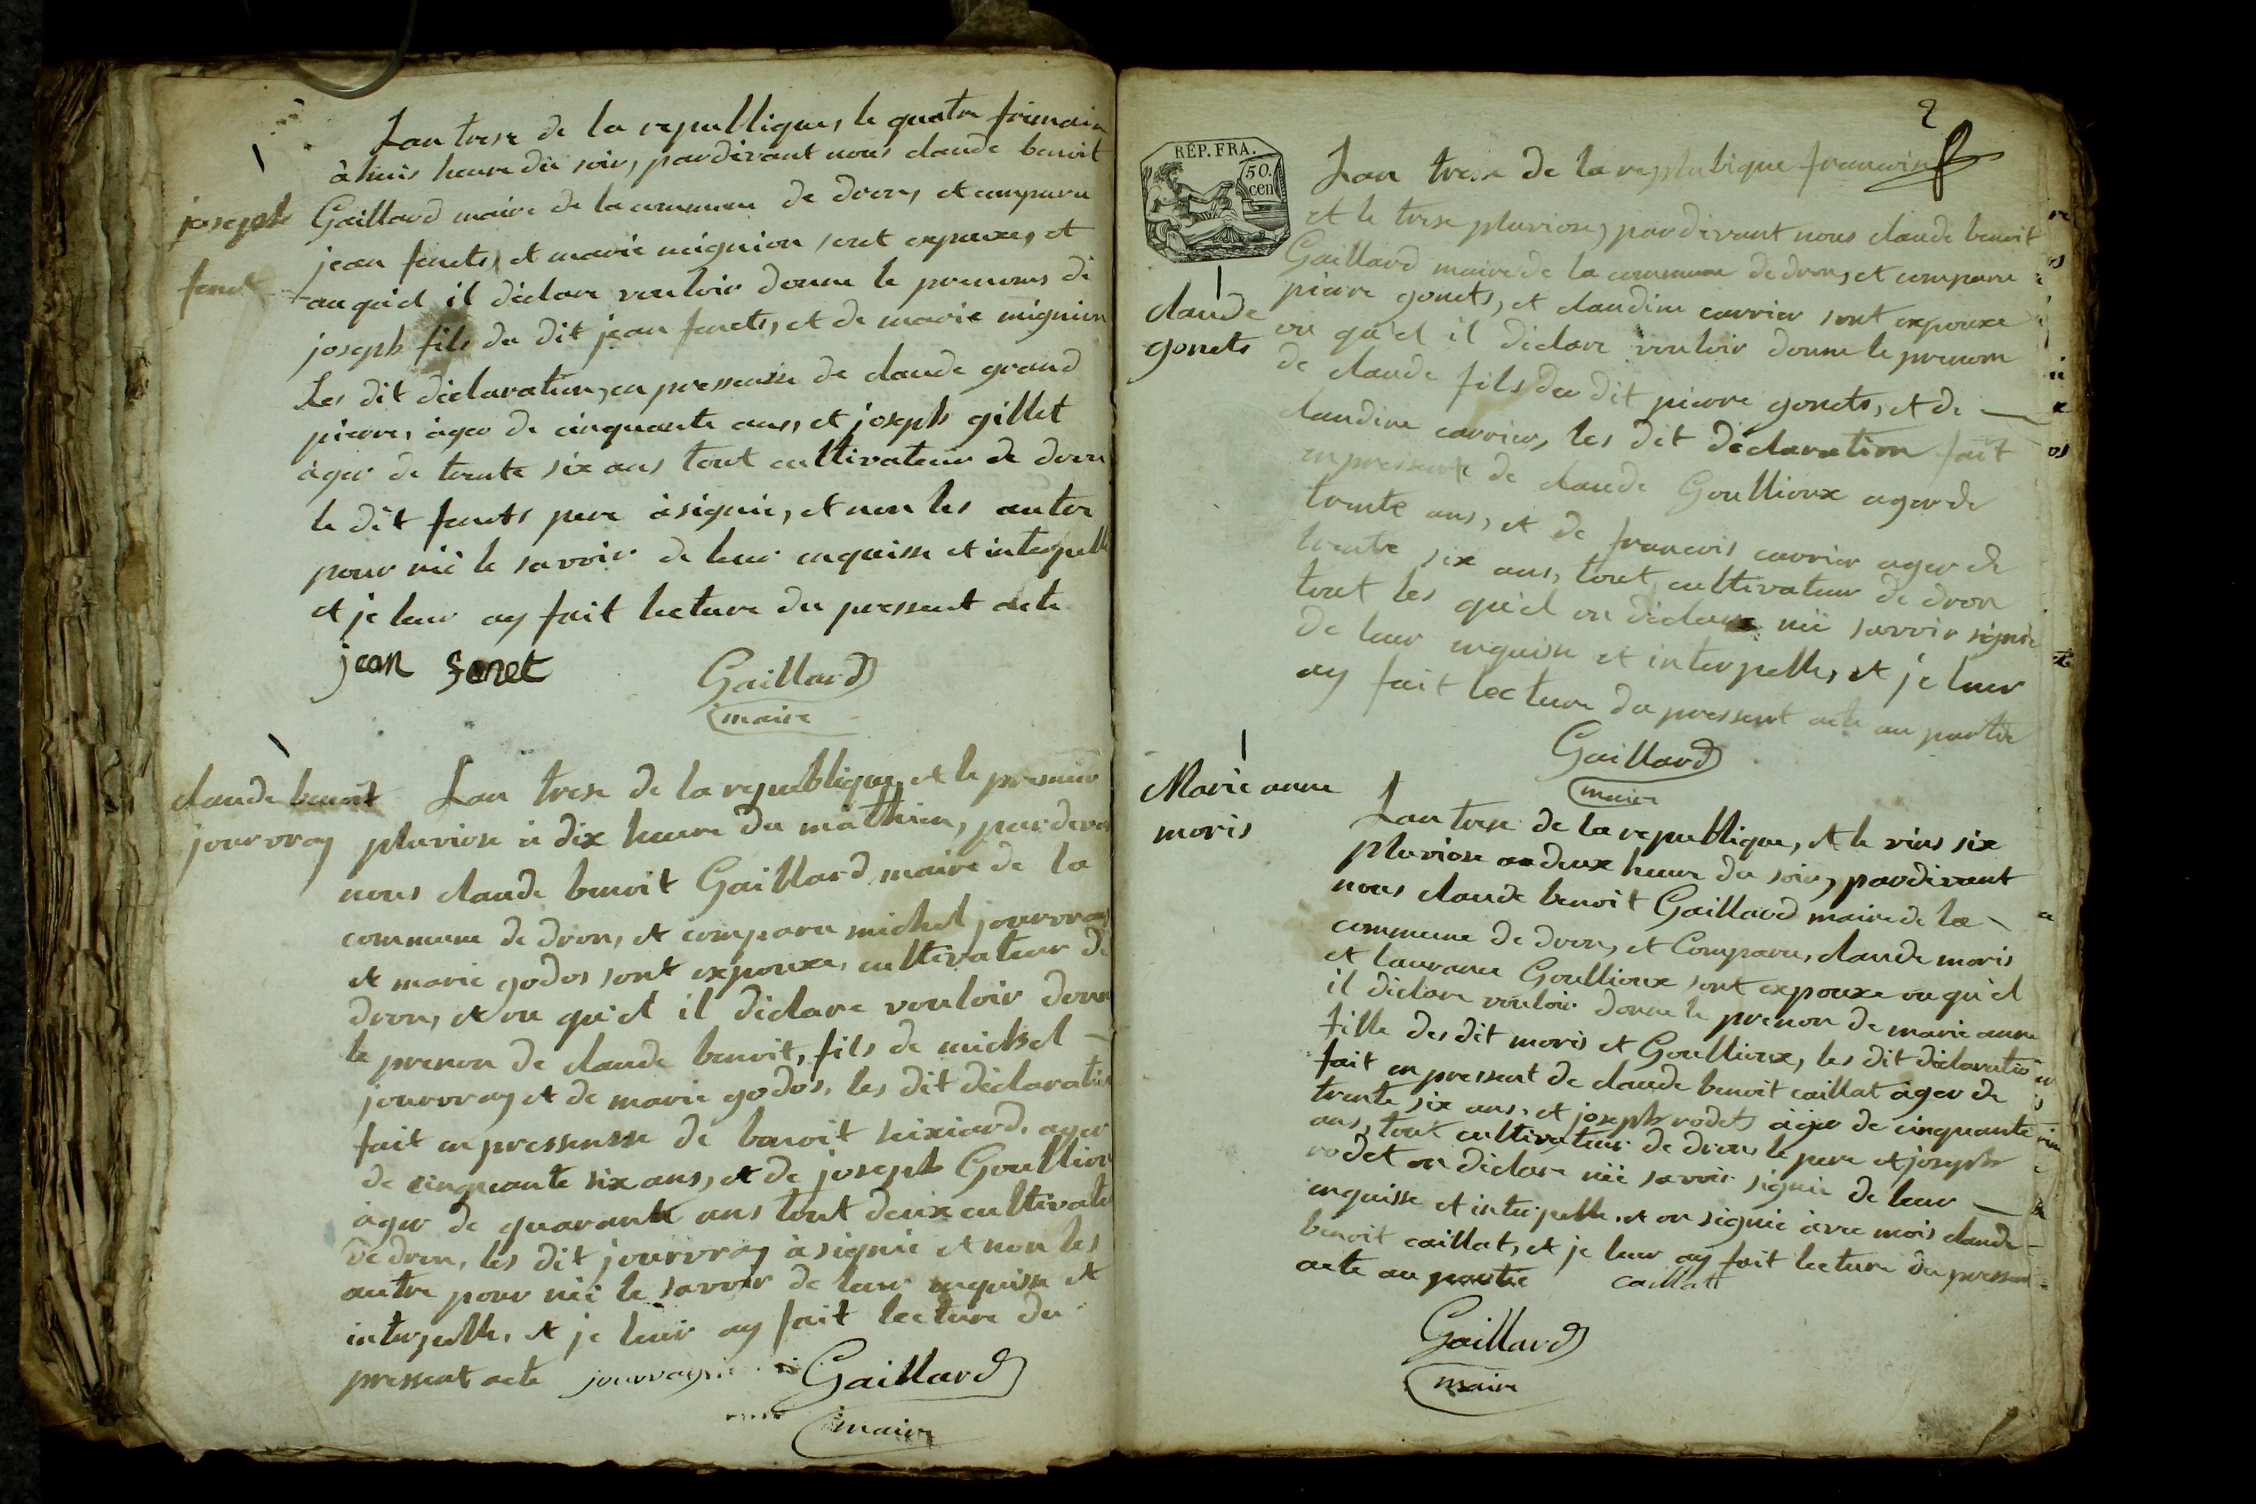 Lan trese de la republique, le quatre frimair
à huis heure du soir, pardevant nous claude benoit
joseph
Gaillard maire de la commune de dron, et comparu
jean fenets, et marie mignion sont expouxe, et
fenet
auqu'el il déclare vouloir donne le prenoms de
joseph fils du dit jean fenets, et de marie mignion
Les dit déclaration, en pressensse de claude grand
pierre, àger de cinquante ans, et joseph gillet
àger de trente six ans tout cultivateur de dron
le dit fenets pere à signie, et non les autre
pour nië le savoir de leur enquisse et interpelle
et je leur ay fait lecture du pressent acte
jean fenet
Gaillard
maire
claude benoit
jourvray
Lan trese de la republique, et le premier
pluviose à dix heure du mathien, pardevan
nous claude benoit Gaillard maire de la
commune de dron, et comparu michel jourvray
et marie godos sont expouxe, cultivateur de
dron, et ou qu'el il déclare vouloir donne
le prenon de claude benoit, fils de michel
jourvray et de marie godos, les dit déclaration
fait en pressensse de benoit ager
de cinquante six ans, et de joseph Goullioux
àger de quarante ans tout deux cultivate
de dron, les dit jourvray à signie et non les
autre pour nië le savoir de leur enquisse et
interpelle, et je leur ay fait lecture du
pressent acte
Gaillard
maire
2
RÉP. FRA.
50.
cen
Lan trese de la repplubique francoise
et le trese pluviose, pardevant nous claude benoit
Gaillard maire de la commune de dron, et comparu
claude
gonets
pierre gonets, et claudine carrier sont expouxe
ou qu'el il déclare vouloir donne le prenom
de claude fils du dit pierre gonets, et de
claudine carrier, les dit déclaration fait
en pressente de claude Goullioux ager de
trente ans, et de francois carrier ager de
trente six ans, tout cultivateur de dron
tout les qu'el on déclare nië savoir signie
de leur enquisse et interpelle, et je leur
ay fait lecture du pressent acte au partie
Gaillard
maire
Marie anne
moris
Lan trese de la republique, et le vins six
pluviose a deux heure du soir, pardevant
nous claude benoit Gaillard maire de la
commune de dron, et Comparu, claude moris
et laurance Goullioux sont expouxe ou qu'el
il déclare vouloir donne le prenon de marie anne
fille des dit moris et Goullioux, les dit déclaratio
fait en pressent de claude benoit caillat àger de
trente six ans, et joseph rodets àger de cinquante
ans, tout cultivateur de dron, le pere et joseph
rodet on déclare nië savoir signie de leur
enquisse et interpelle, et on signie àvec mois claude
benoit caillat, et je leur ay fait lecture du pressent
acte au partie
caillatt
Gaillard
maire